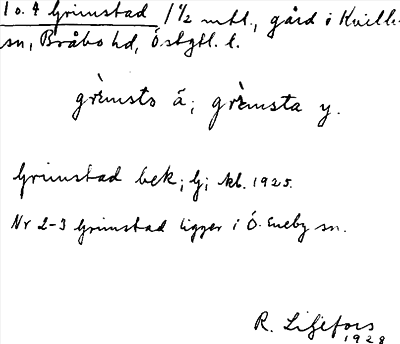 1 o. 4 Grimstad 1 1/2 mtl., gård i Kville-
sn, Bråbo hd, Östgtl. l.
grìmsto ä; grìmsta y.
Grimstad bek; Gj. kb. 1925.
Nr 2-3 Grimstad ligger i Ö. Eneby sn.
R. Liljefors
1928